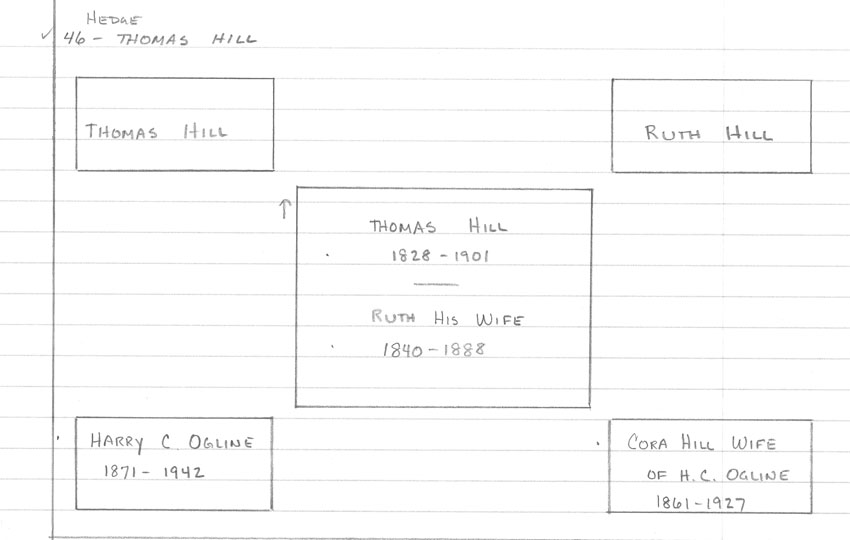 HEDGE
✓ 46 - THOMAS HILL
THOMAS HILL
RUTH HILL
↑
THOMAS HILL
1828 - 1901
RUTH HIS WIFE
1840 - 1888
HARRY C OGLINE
1871 - 1942
CORA HILL WIFE
OF H.C. OGLINE
1861 - 1927